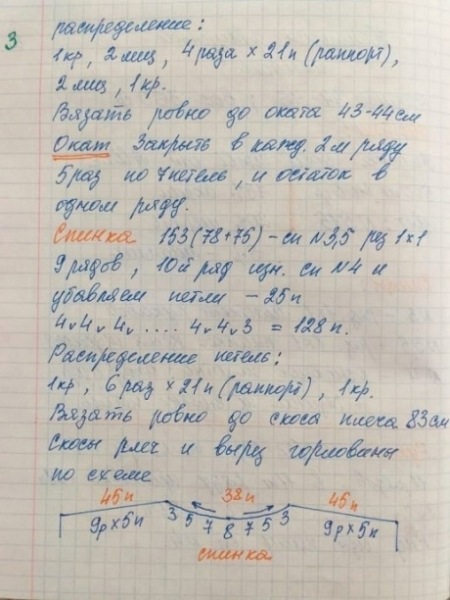 3
распределение:
1кр, 2 лиц, 4 раза × 21п (раппорт),
2 лиц, 1кр.
Вязать ровно до оката 43-44 см
Окат Закрыть в кажд. 2м ряду
5 раз по 7 петель, и остаток в
одном ряду.
Спинка 153 (78+75) - сп N3,5 рез 1×1
9 рядов, 10й ряд изн. сп N4 и
убавляем петли - 25п
4v4v4v .... 4v4v3 = 128п.
Распределение петель:
1кр, 6 раз × 21п (раппорт), 1кр.
Вязать ровно до скоса плеча 83см
Скосы плеч и вырез горловины
по схеме
45п 38п 45п
9р×5п 3 5 7 8 7 5 3 9р×5п
спинка